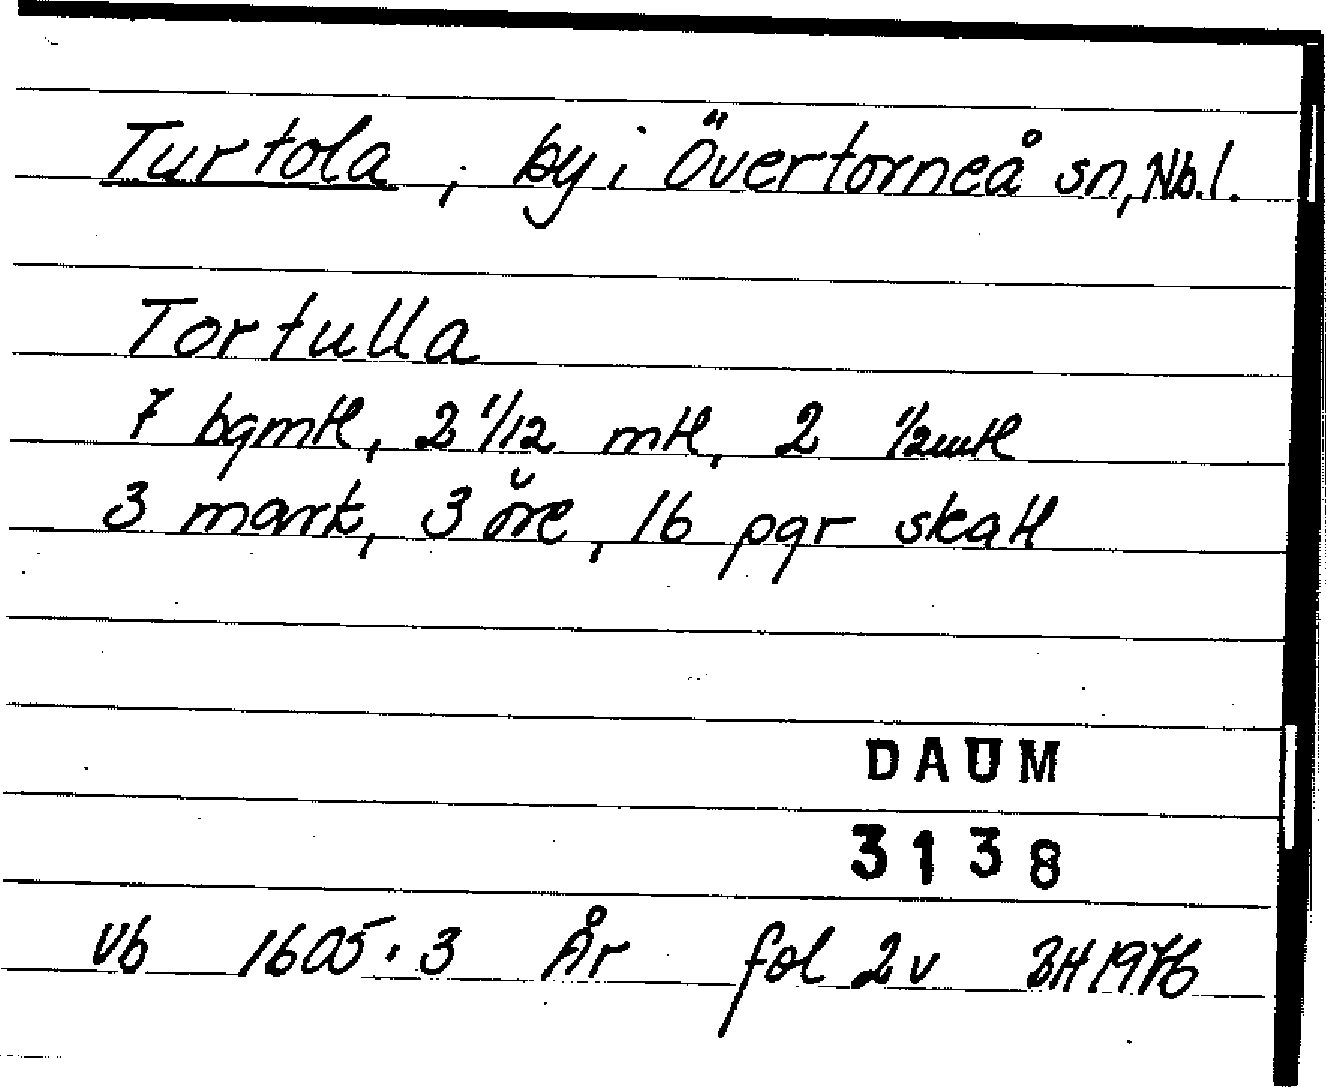 Turtola, by i Övertorneå sn, Nb.l.
Tortulla
7 bgmtl, 2 1/12 mtl, 2 1/2mtl
3 mark, 3 öre, 16 pgr skatt
DAUM
3138
Vb 1605:3 År fol 2v BH 1976